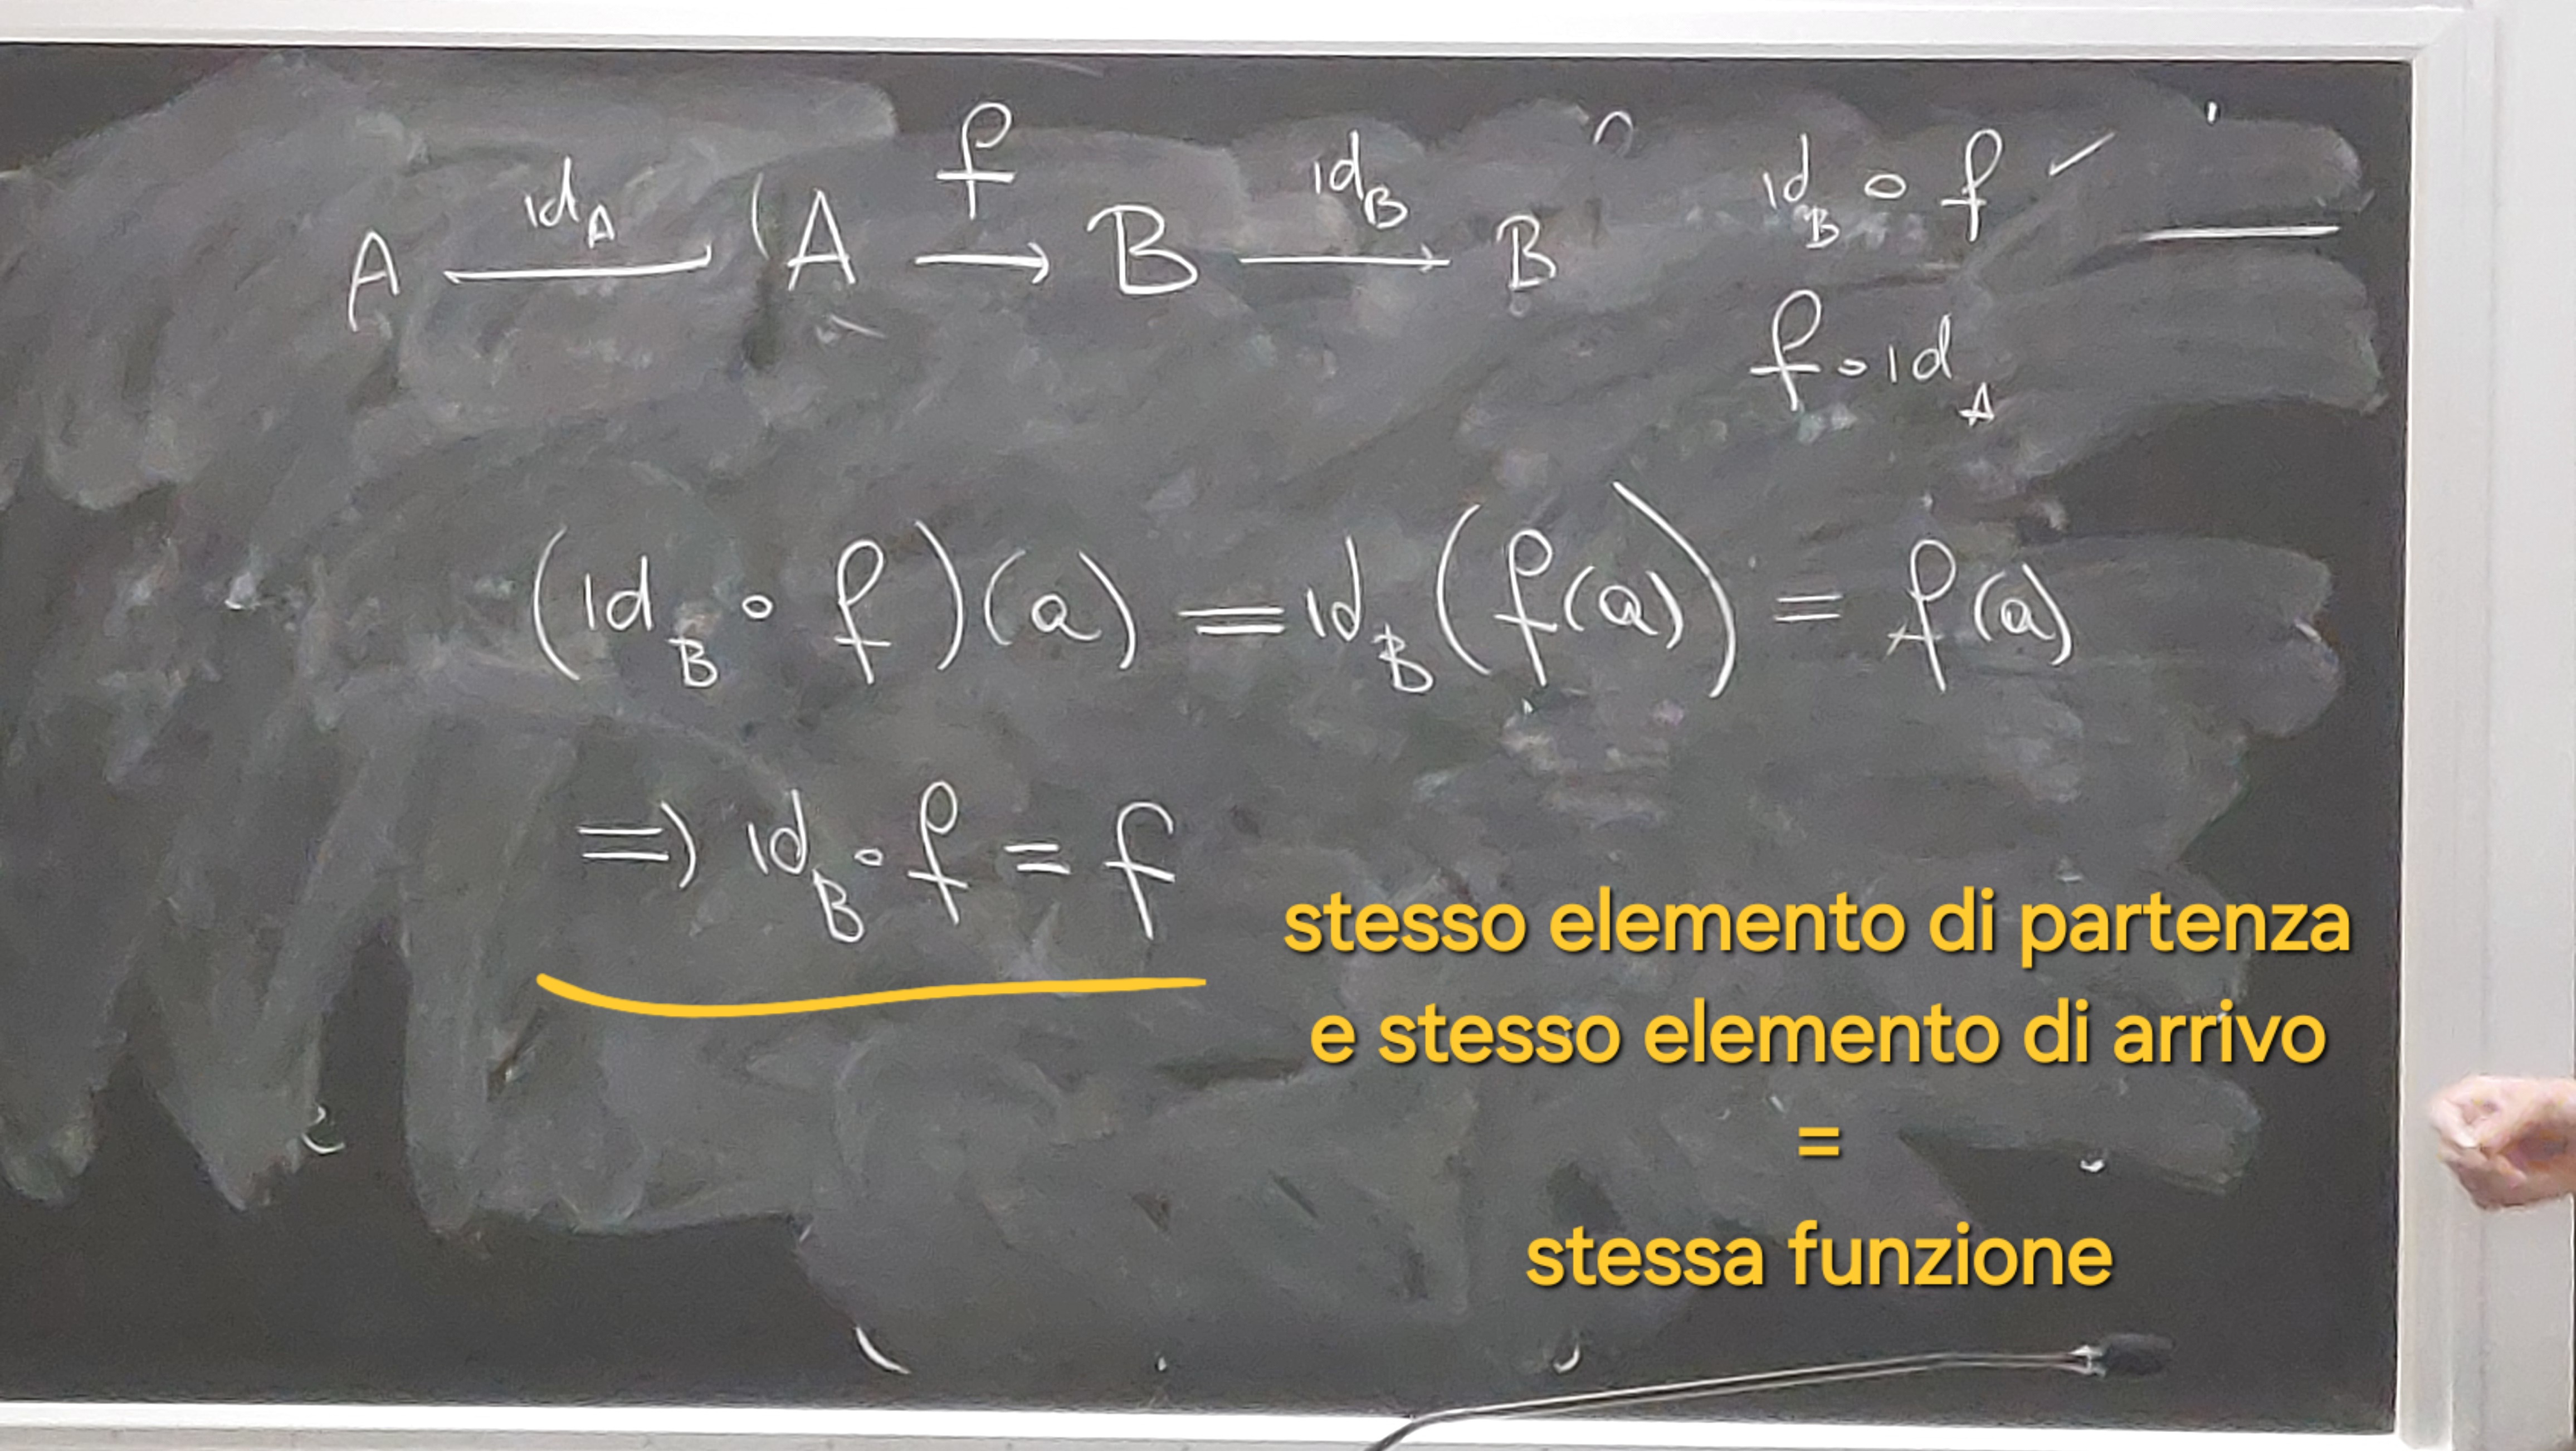 A ←id_A— (A —f→ B —id_B→ B id_B ∘ f ✓
f ∘ id_A
(id_B ∘ f)(a) = id_B(f(a)) = f(a)
=) id_B ∘ f = f
stesso elemento di partenza
e stesso elemento di arrivo
=
stessa funzione